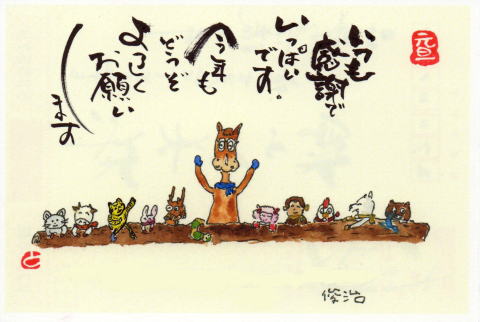 いつも
感謝で
いっぱい
です。
今年も
どうぞ
よろしく
お願い
します
元旦
と
俊治